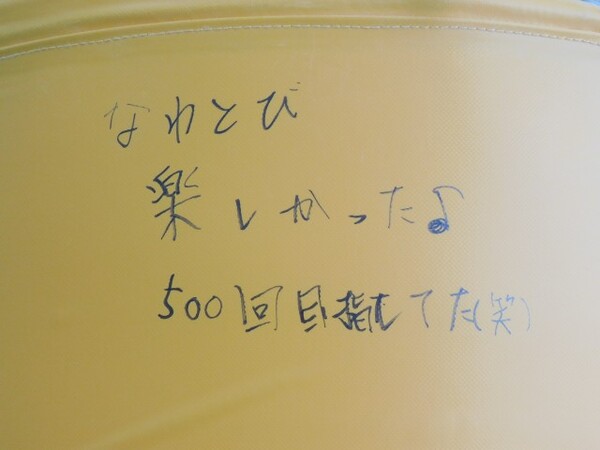 なわとび
楽しかった♪
500回目指してた(笑)